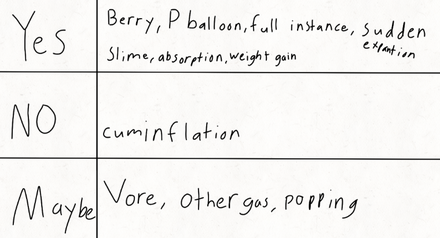 Yes
Berry, P balloon, full instance, sudden expantion
Slime, absorption, weight gain
NO
cuminflation
Maybe
Vore, other gas, popping